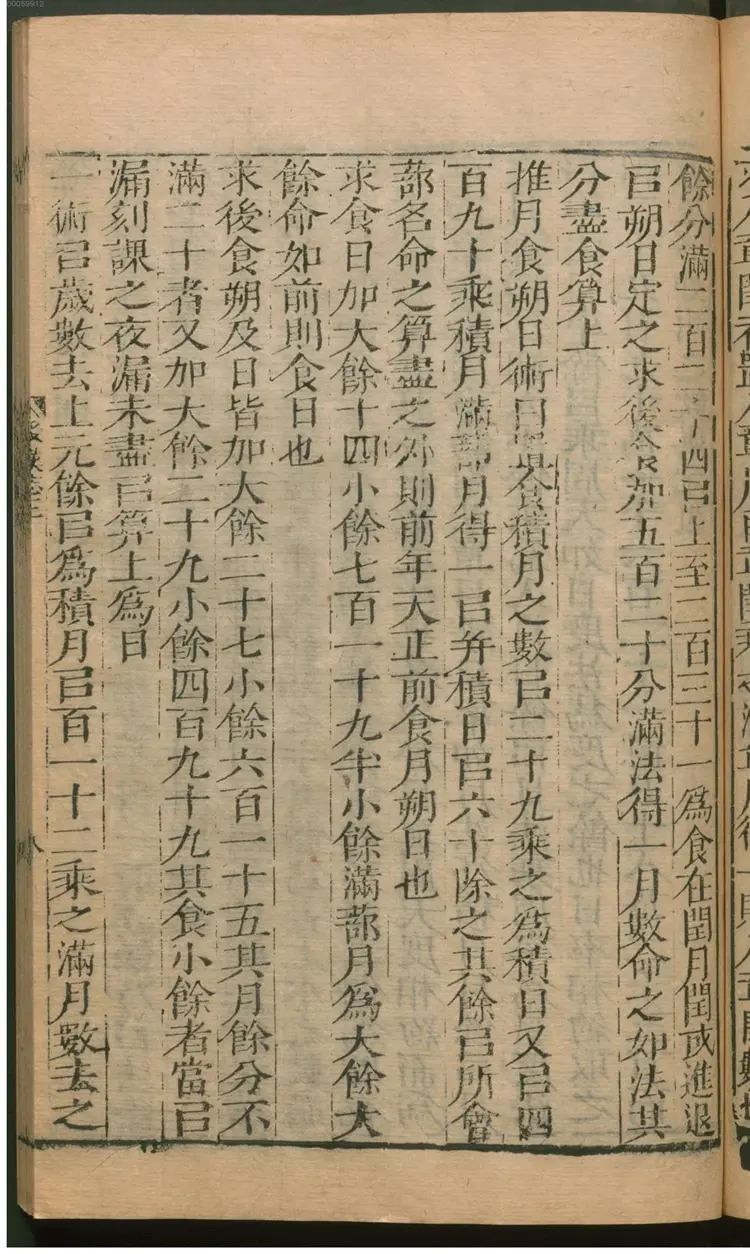 00059912
餘分滿二百二十四㠯上至二百三十一爲食在閏月閏或進退
㠯朔日定之求後食加五百二十分滿法得一月數命之如法其
分盡食算上
推月食朔日術曰置食積月之數㠯二十九乘之爲積日又㠯四
百九十九乘積月滿蔀月得一㠯并積日㠯六十除之其餘㠯所會
蔀名命之算盡之外則前年天正前食月朔日也
求食日加大餘十四小餘七百一十九半小餘滿蔀月爲大餘大
餘命如前則食日也
求後食朔及日皆加大餘二十七小餘六百一十五其月餘分不
滿二十者又加大餘二十九小餘四百九十九其食小餘者當㠯
漏刻課之夜漏未盡㠯算上爲日
一術㠯歲數去上元餘㠯爲積月㠯百一十二乘之滿月數去之